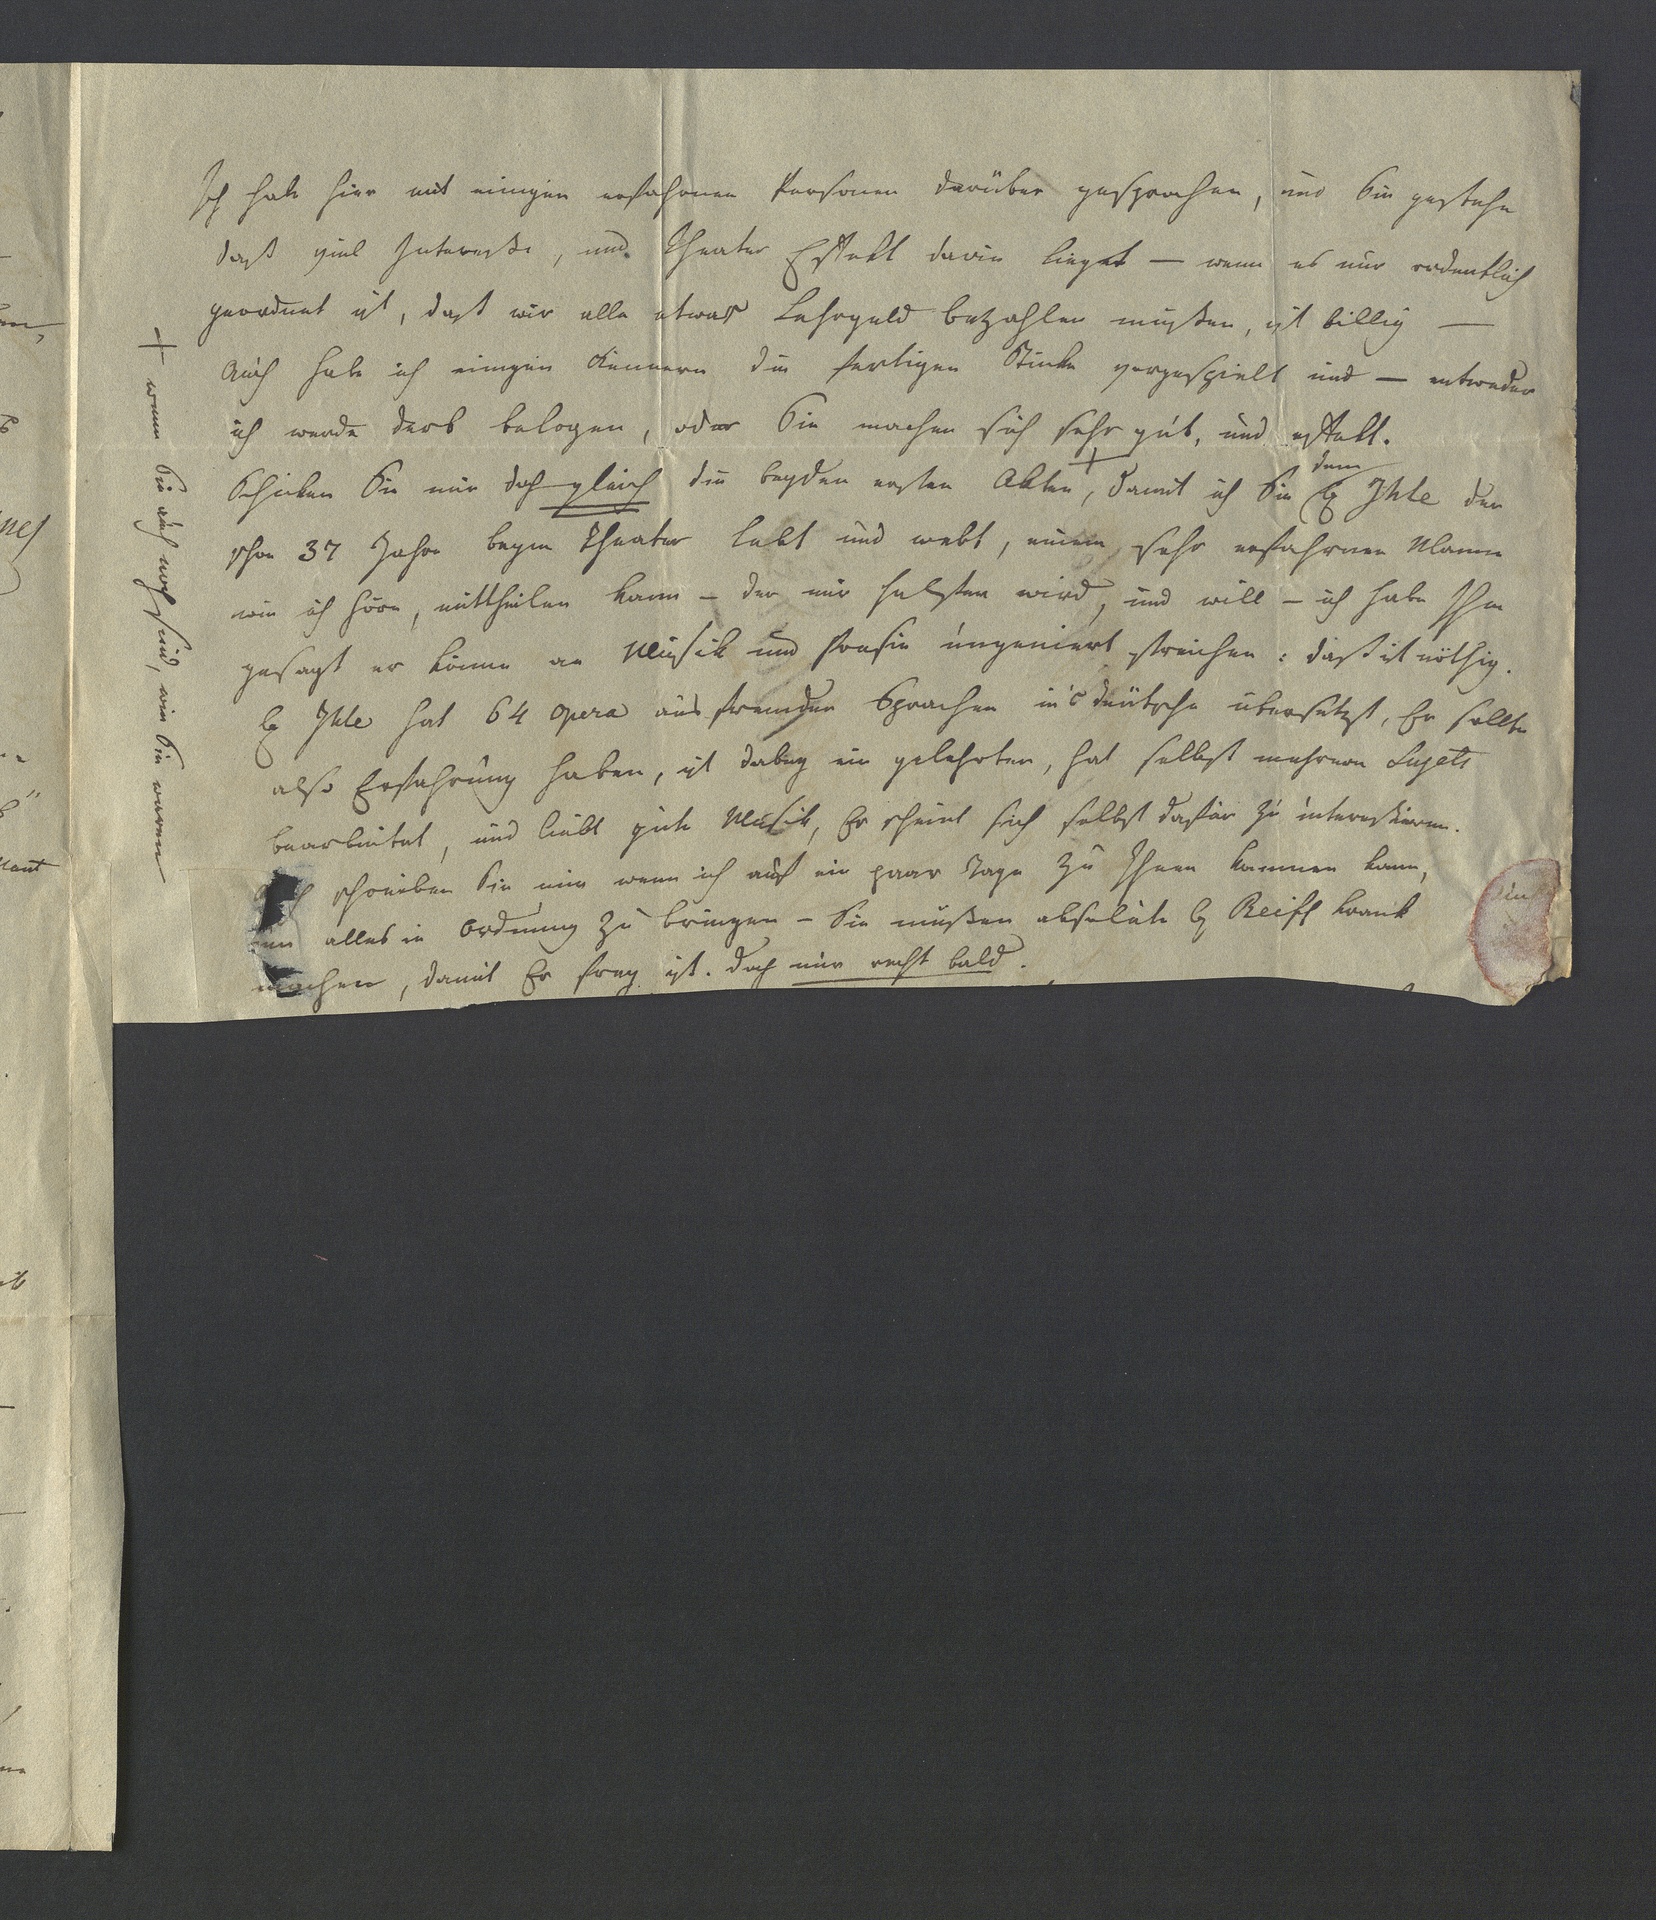 Ich habe hier mit einigen erfahrnen Personen darüber gesprochen, und Sie gestehn
daß viel Intereße, und Theater Effekt darin lieget — wenn es nur ordentlich
geordnet ist, daß wir alle etwas Lehrgeld bezahlen müßen, ist billig —
Auch habe ich einigen Kennern die fertigen Stücke vorgespielt und — entweder
ich werde derb belogen, oder Sie machen sich sehr gut, und Effekt.
Schicken Sie mir doch gleich die beyden ersten Akten, + damit ich Sie dem H Ihle der
schon 37 Jahre beym Theater lebt und webt, einem sehr erfahrnen Manne
wie ich höre, mittheilen kann — der mir helfen wird, und will — ich habe Ihm
gesagt er könne an Musik und Poesie ungeniert streichen: daß ist nöthig.
H Ihle hat 64 opera aus fremden Sprachen in's deutsche übersetzt, Er sollte
also Erfahrung haben, ist dabey ein gelehrter, hat selbst mehrere Sujets
bearbeitet, und liebt gute Musik, Er scheint sich selbst dafür zu intereßieren.
schreiben Sie mir wenn ich auf ein paar Tage zu Ihnen kommen kann,
um alles in Ordnung zu bringen — Sie müßen absolute H Reiff krank
machen, damit Er frey ist. doch nur recht bald.
+ wenn Sie auch noch sind, wie Sie waren